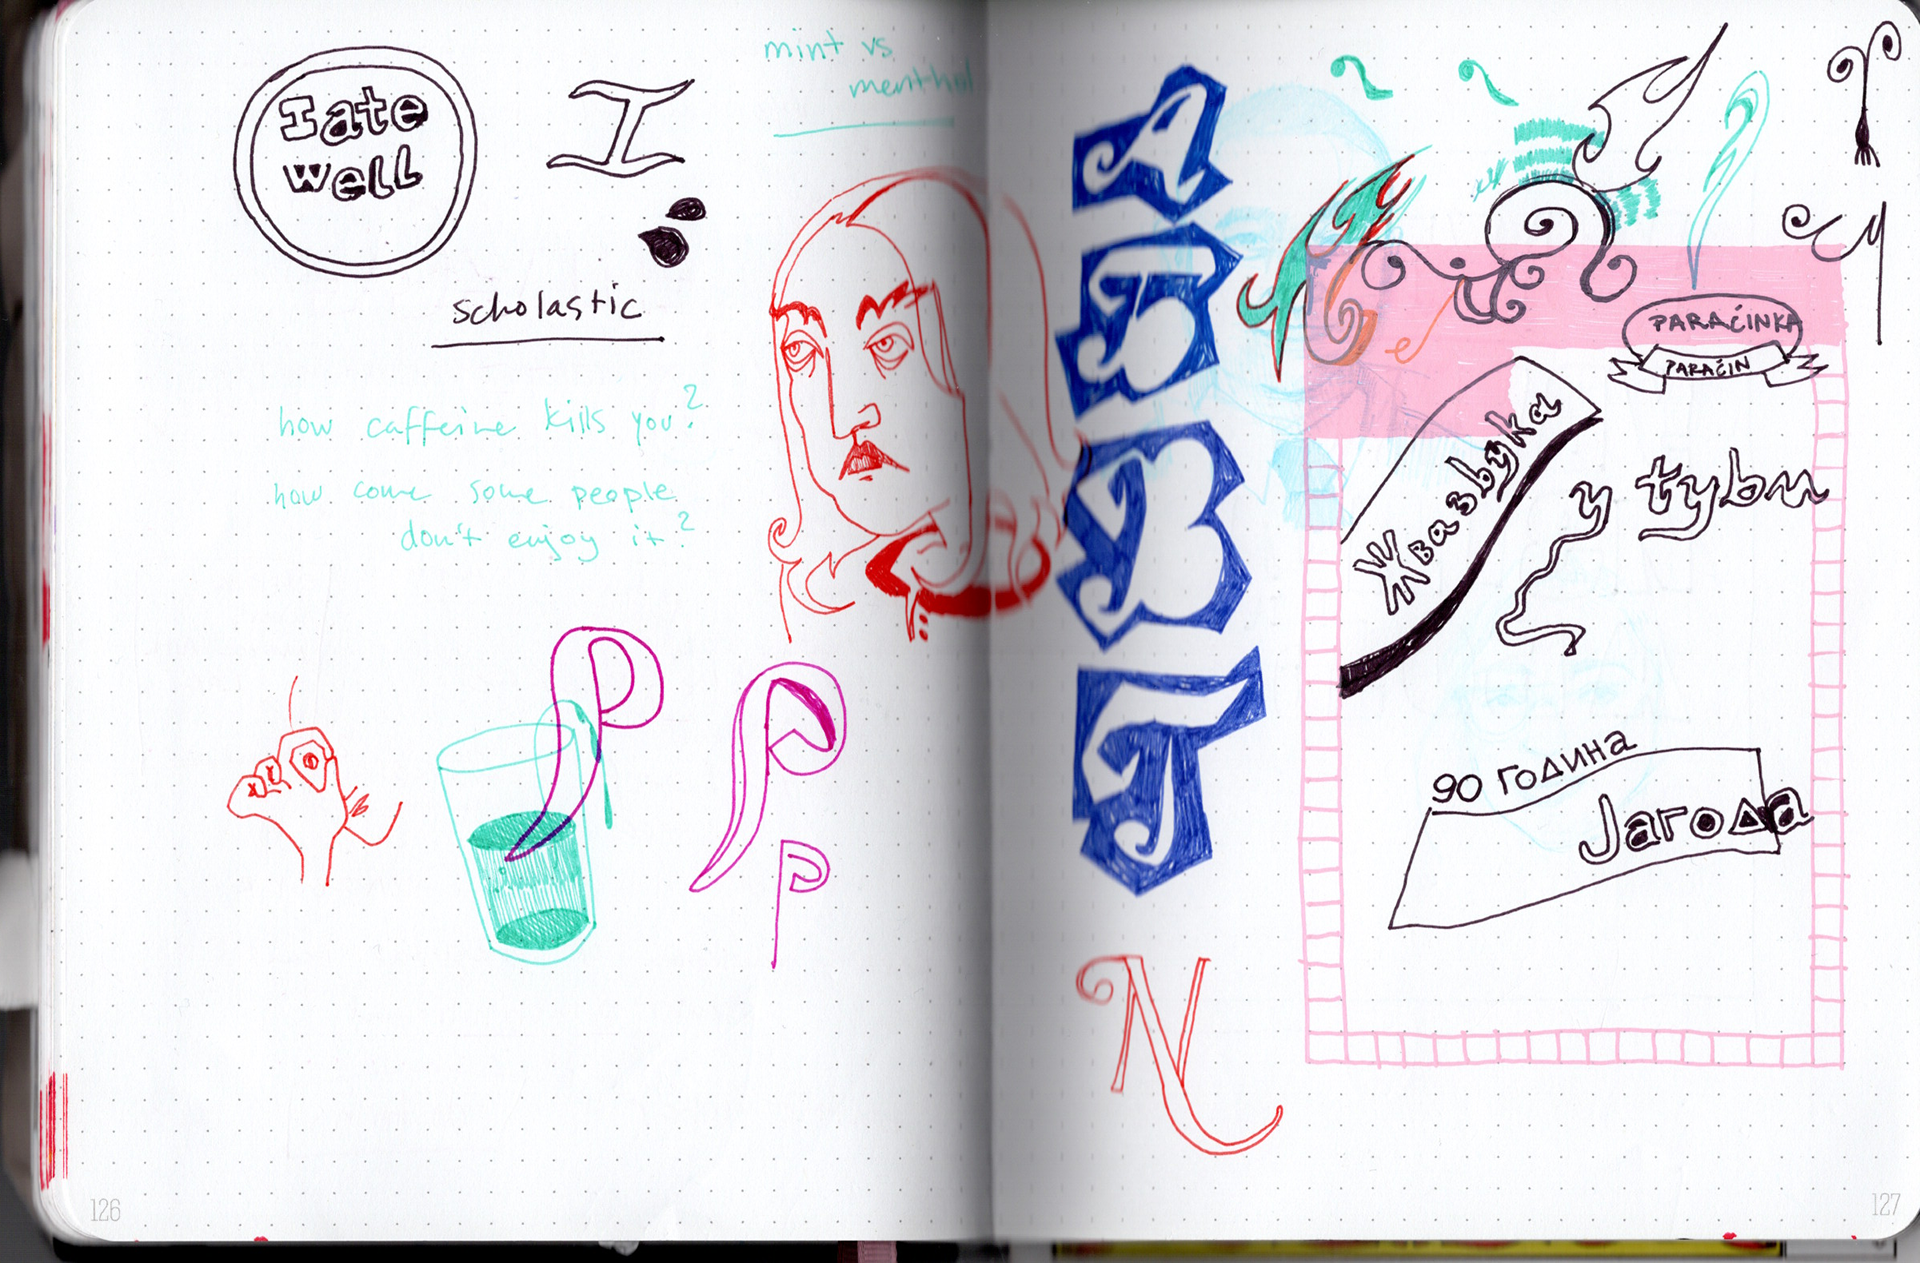 I ate
well
I
mint vs
menthol
scholastic
how caffeine kills you?
how come some people
don't enjoy it?
P
P
P
126
А
Б
В
Г
N
PARAĆINKA
PARAĆIN
Жвазбука
у туби
90 година
Јагода
127